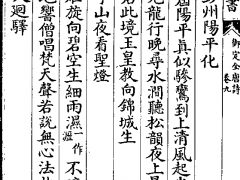 書
御定全唐詩
卷九
彭州陽平化
屆陽平真似驂鸞到上清風起
見龍行晚尋水澗聽松韻夜上
居此境玉皇教向錦城生
學山夜看聖燈
炬旋向碧空生細雨一作溼不
響僧唱梵天聲若說無心法
迴驛